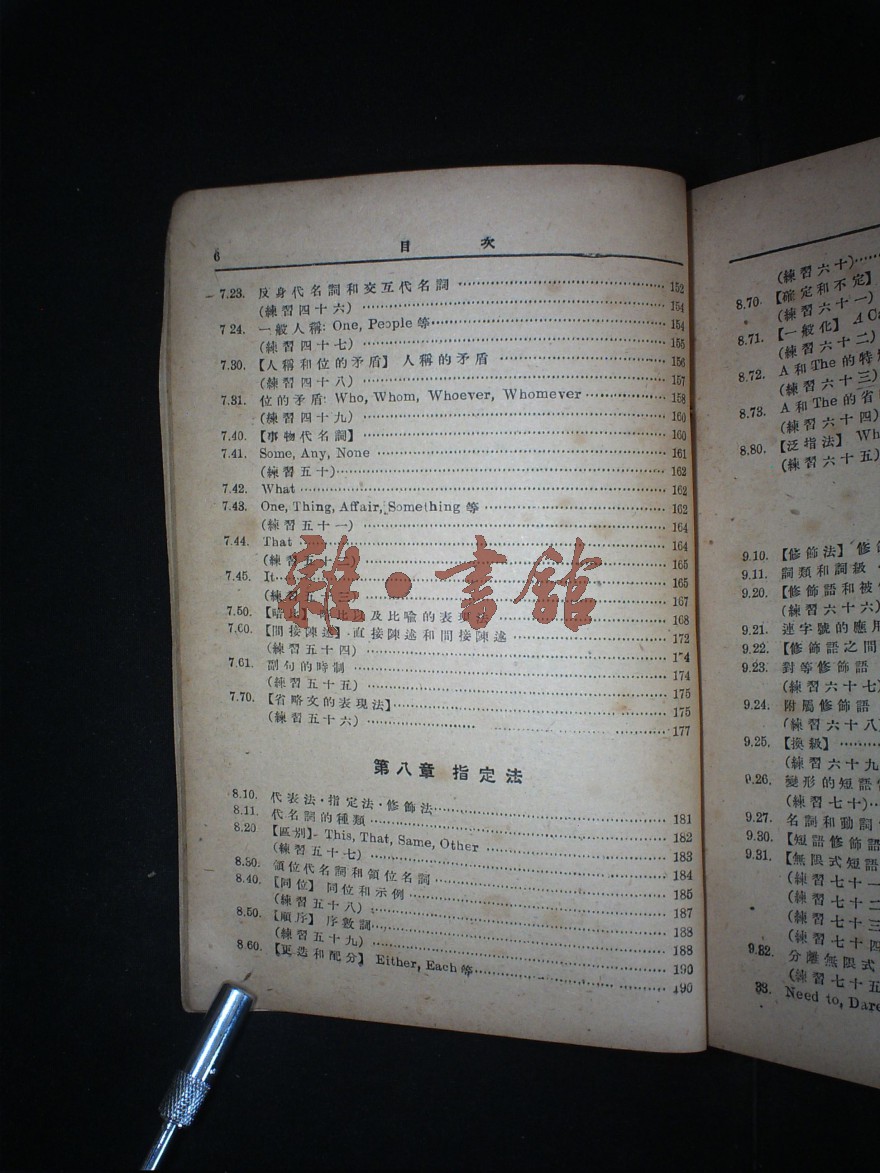 6 目 次
7.23. 反身代名詞和交互代名詞 152
(練習四十六) 154
7 24. 一般人稱: One, People 等 154
(練習四十七) 155
7.30. 【人稱和位的矛盾】 人稱的矛盾 156
(練習四十八) 157
7.31. 位的矛盾: Who, Whom, Whoever, Whomever 158
(練習四十九) 160
7.40. 【事物代名詞】 160
7.41. Some, Any, None 161
(練習五十) 162
7.42. What 162
7.43. One, Thing, Affair, Something 等 162
(練習五十一) 164
7.44. That 164
(練習五十二) 165
7.45. It 165
(練習五十三) 167
7.50. 比以及比喩的表現法 168
7.60. 【間接陳述】 直接陳述和間接陳述 172
(練習五十四) 174
7.61. 副句的時制 174
(練習五十五) 175
7.70. 【省略文的表現法】 175
(練習五十六) 177
第八章 指定法
8.10. 代表法·指定法·修飾法 181
8.11. 代名詞的種類 182
8.20. 【區別】 This, That, Same, Other 183
(練習五十七) 184
8.30. 領位代名詞和領位名詞 185
8.40. 【同位】 同位和示例 187
(練習五十八) 188
8.50. 【順序】 序數詞 188
(練習五十九) 190
8.60. 【更迭和配分】 Either, Each 等 190
(練習六十)
8.70. 【確定和不定】
(練習六十一)
8.71. 【一般化】 A
(練習六十二)
8.72. A 和 The 的特
(練習六十三)
8.73. A 和 The 的省
(練習六十四)
8.80. 【泛指法】 Wh
(練習六十五)
9.10. 【修飾法】 修
9.11. 詞類和詞級
9.20. 【修飾語和被
(練習六十六)
9.21. 連字號的應用
9.22. 【修飾語之間
9.23. 對等修飾語
(練習六十七)
9.24. 附屬修飾語
(練習六十八)
9.25. 【換級】
(練習六十九
9.26. 變形的短語
(練習七十)
9.27. 名詞和動詞
9.30. 【短語修飾語
9.31. 【無限式短語
(練習七十一
(練習七十二
(練習七十三
(練習七十四
9.32. 分離無限式
(練習七十五
33. Need to, Dare
雜·書館